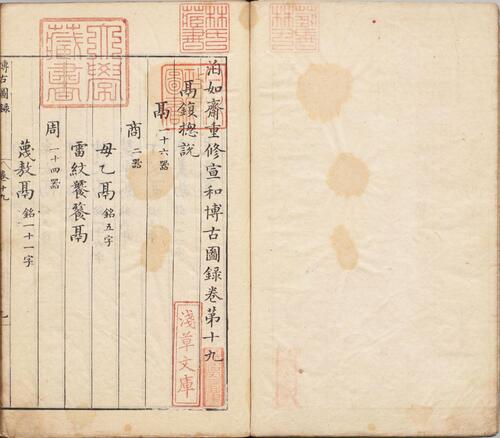 泊如齋重修宣和博古圖錄卷第十九
鬲鍑總說
鬲一十六器
商二器
母乙鬲銘五字
雷紋饕餮鬲
周一十四器
蔑敖鬲銘一十一字
博古圖錄
卷十九
林氏藏書
淺草文庫
藏書